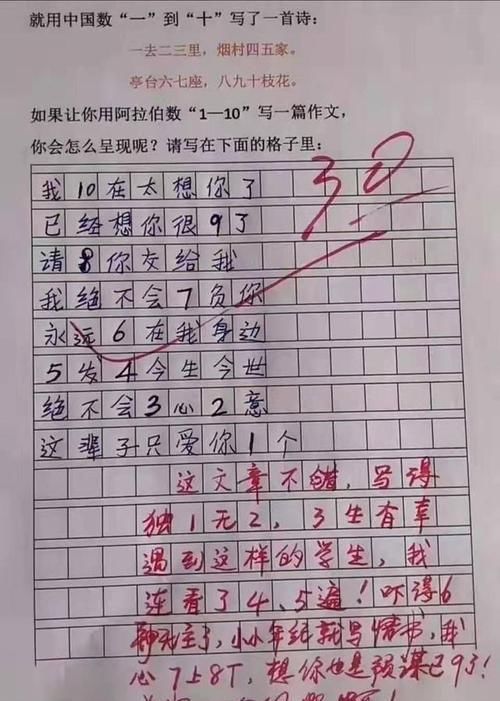 就用中国数“一”到“十”写了一首诗：
一去二三里，烟村四五家。
亭台六七座，八九十枝花。
如果让你用阿拉伯数“1—10”写一篇作文，
你会怎么呈现呢？请写在下面的格子里：
30
我10在太想你了
已经想你很9了
请8你交给我
我绝不会7负你
永远6在我身边
5发4今生今世
绝不会3心2意
这辈子只爱你1个
这文章不错，写得
独1无2，3生有幸
遇到这样的学生，我
连看了4、5遍！吓得6
神无主了，小小年纪就写情书，我
心7上8下，想你也是预谋已9了！